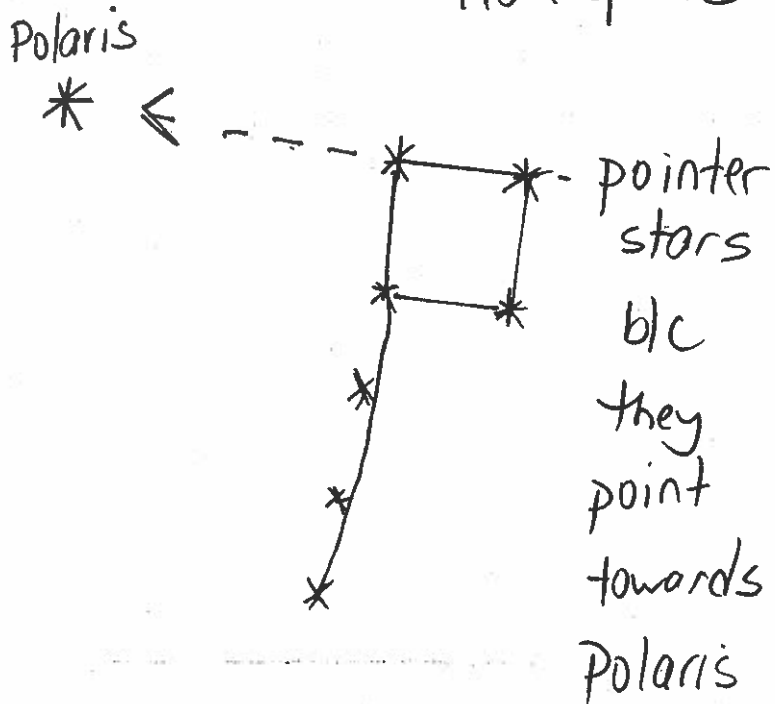 Polaris
pointer
stars
b/c
they
point
towards
Polaris